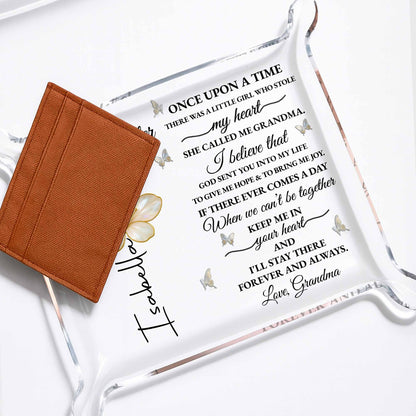 ONCE UPON A TIME
THERE WAS A LITTLE GIRL WHO STOLE
my heart
SHE CALLED ME GRANDMA,
I believe that
GOD SENT YOU INTO MY LIFE
TO GIVE ME HOPE & TO BRING ME JOY.
IF THERE EVER COMES A DAY
When we can't be together
KEEP ME IN
your heart
AND
I'LL STAY THERE
FOREVER AND ALWAYS.
Love, Grandma
Isabella